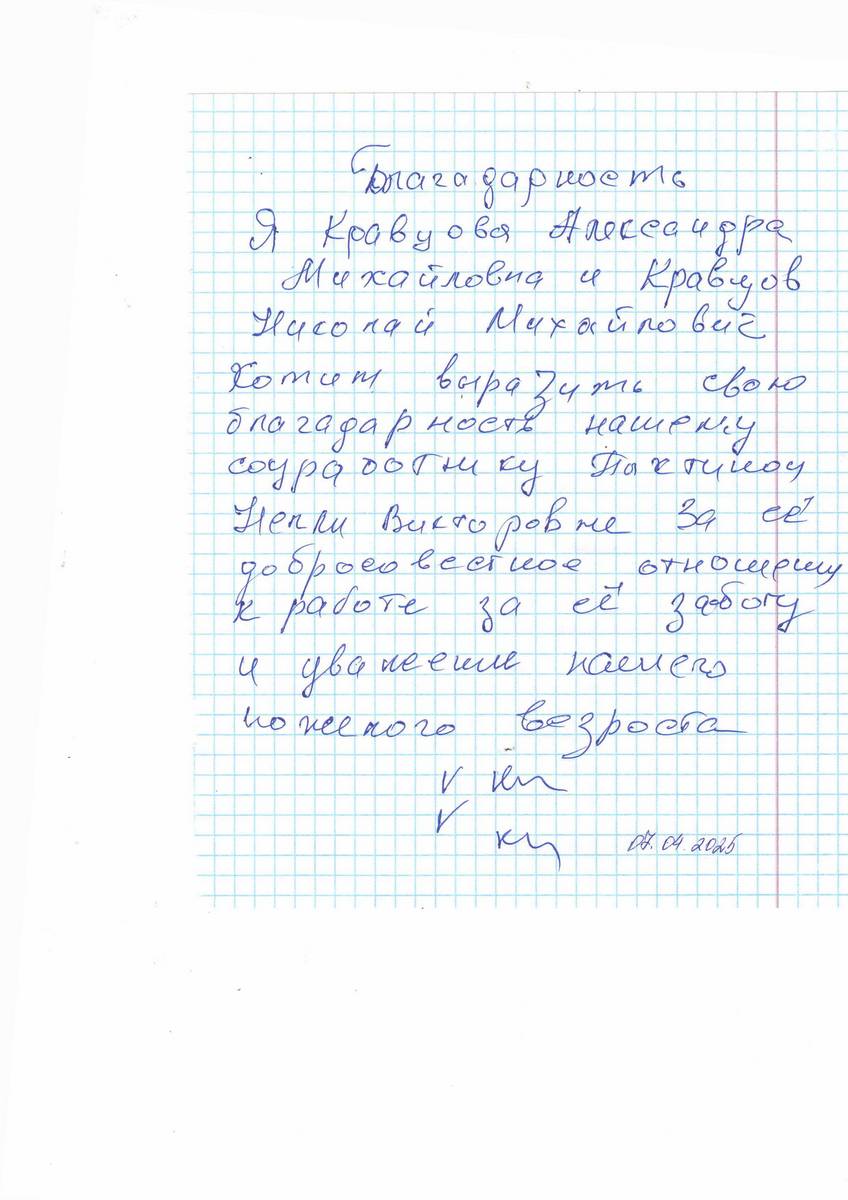 Благадарность
Я Кравцова Александра
Михайловна и Кравцов
Николай Михайлович
Хотим выразить свою
благадарность нашему
соцработнику Пыхтиной
Нелли Викторовне за её
добросовестное отношению
к работе за её заботу
и уважение нашего
пожелого возроста
07.04.2025